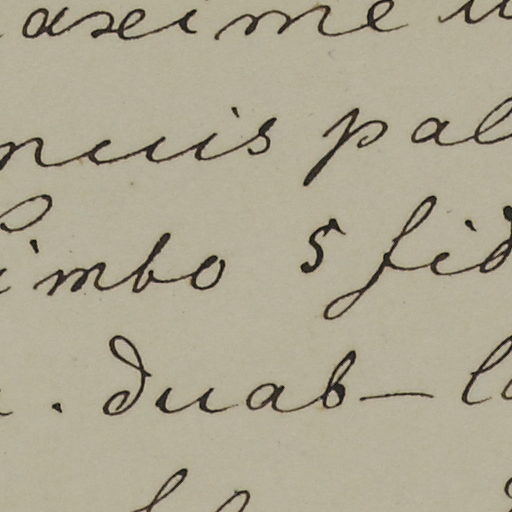 axime u
nuis pal
limbo 5 fid
. duab— l